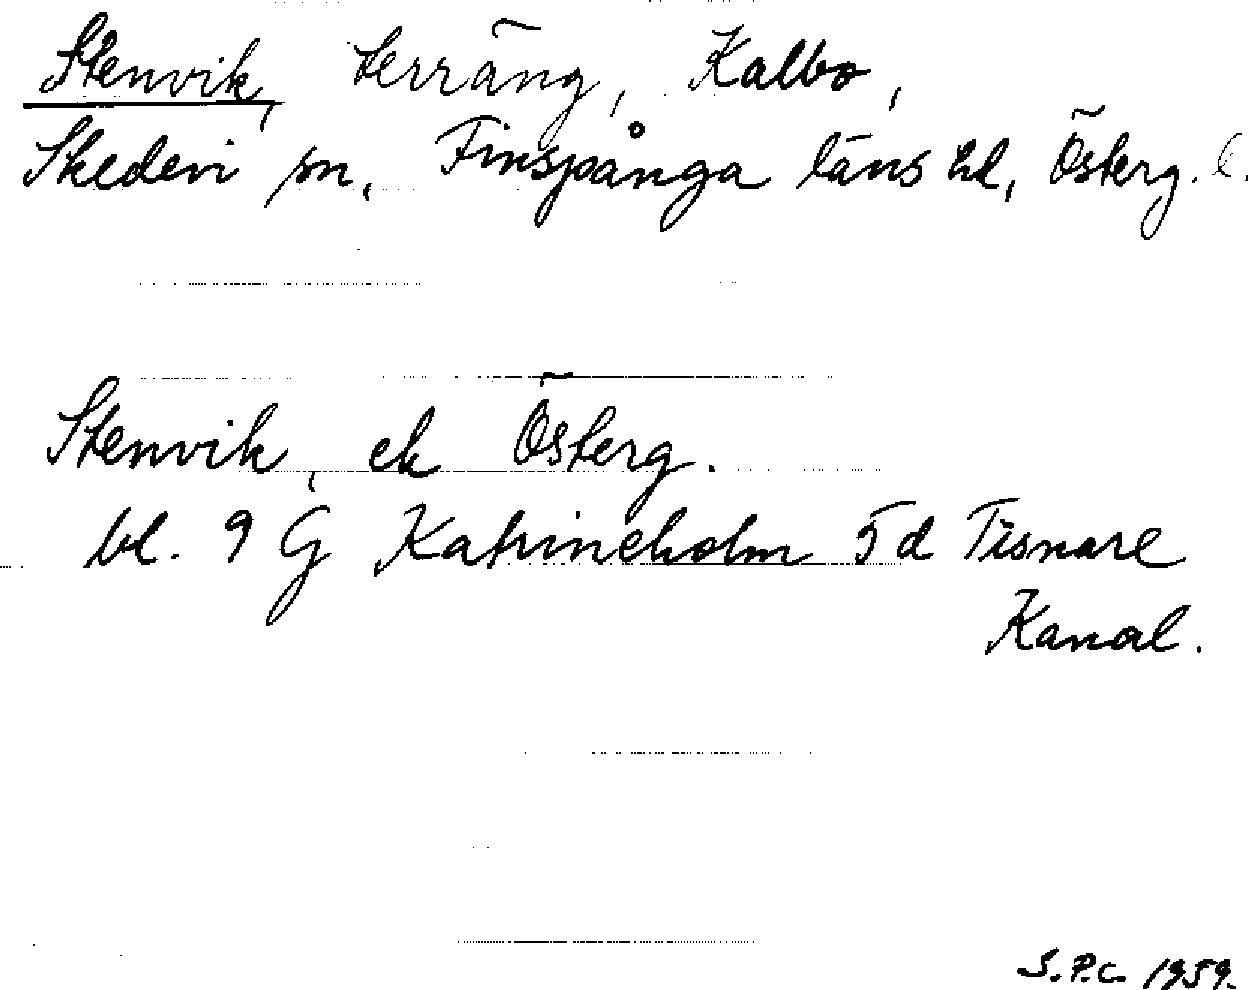 Stenvik, terräng, Kalbo,
Skedevi sn, Finspånga läns hd, Österg. l.
Stenvik, ek Österg.
bl. 9 G Katrineholm 5d Tisnare
Kanal.
S.P.C. 1959.